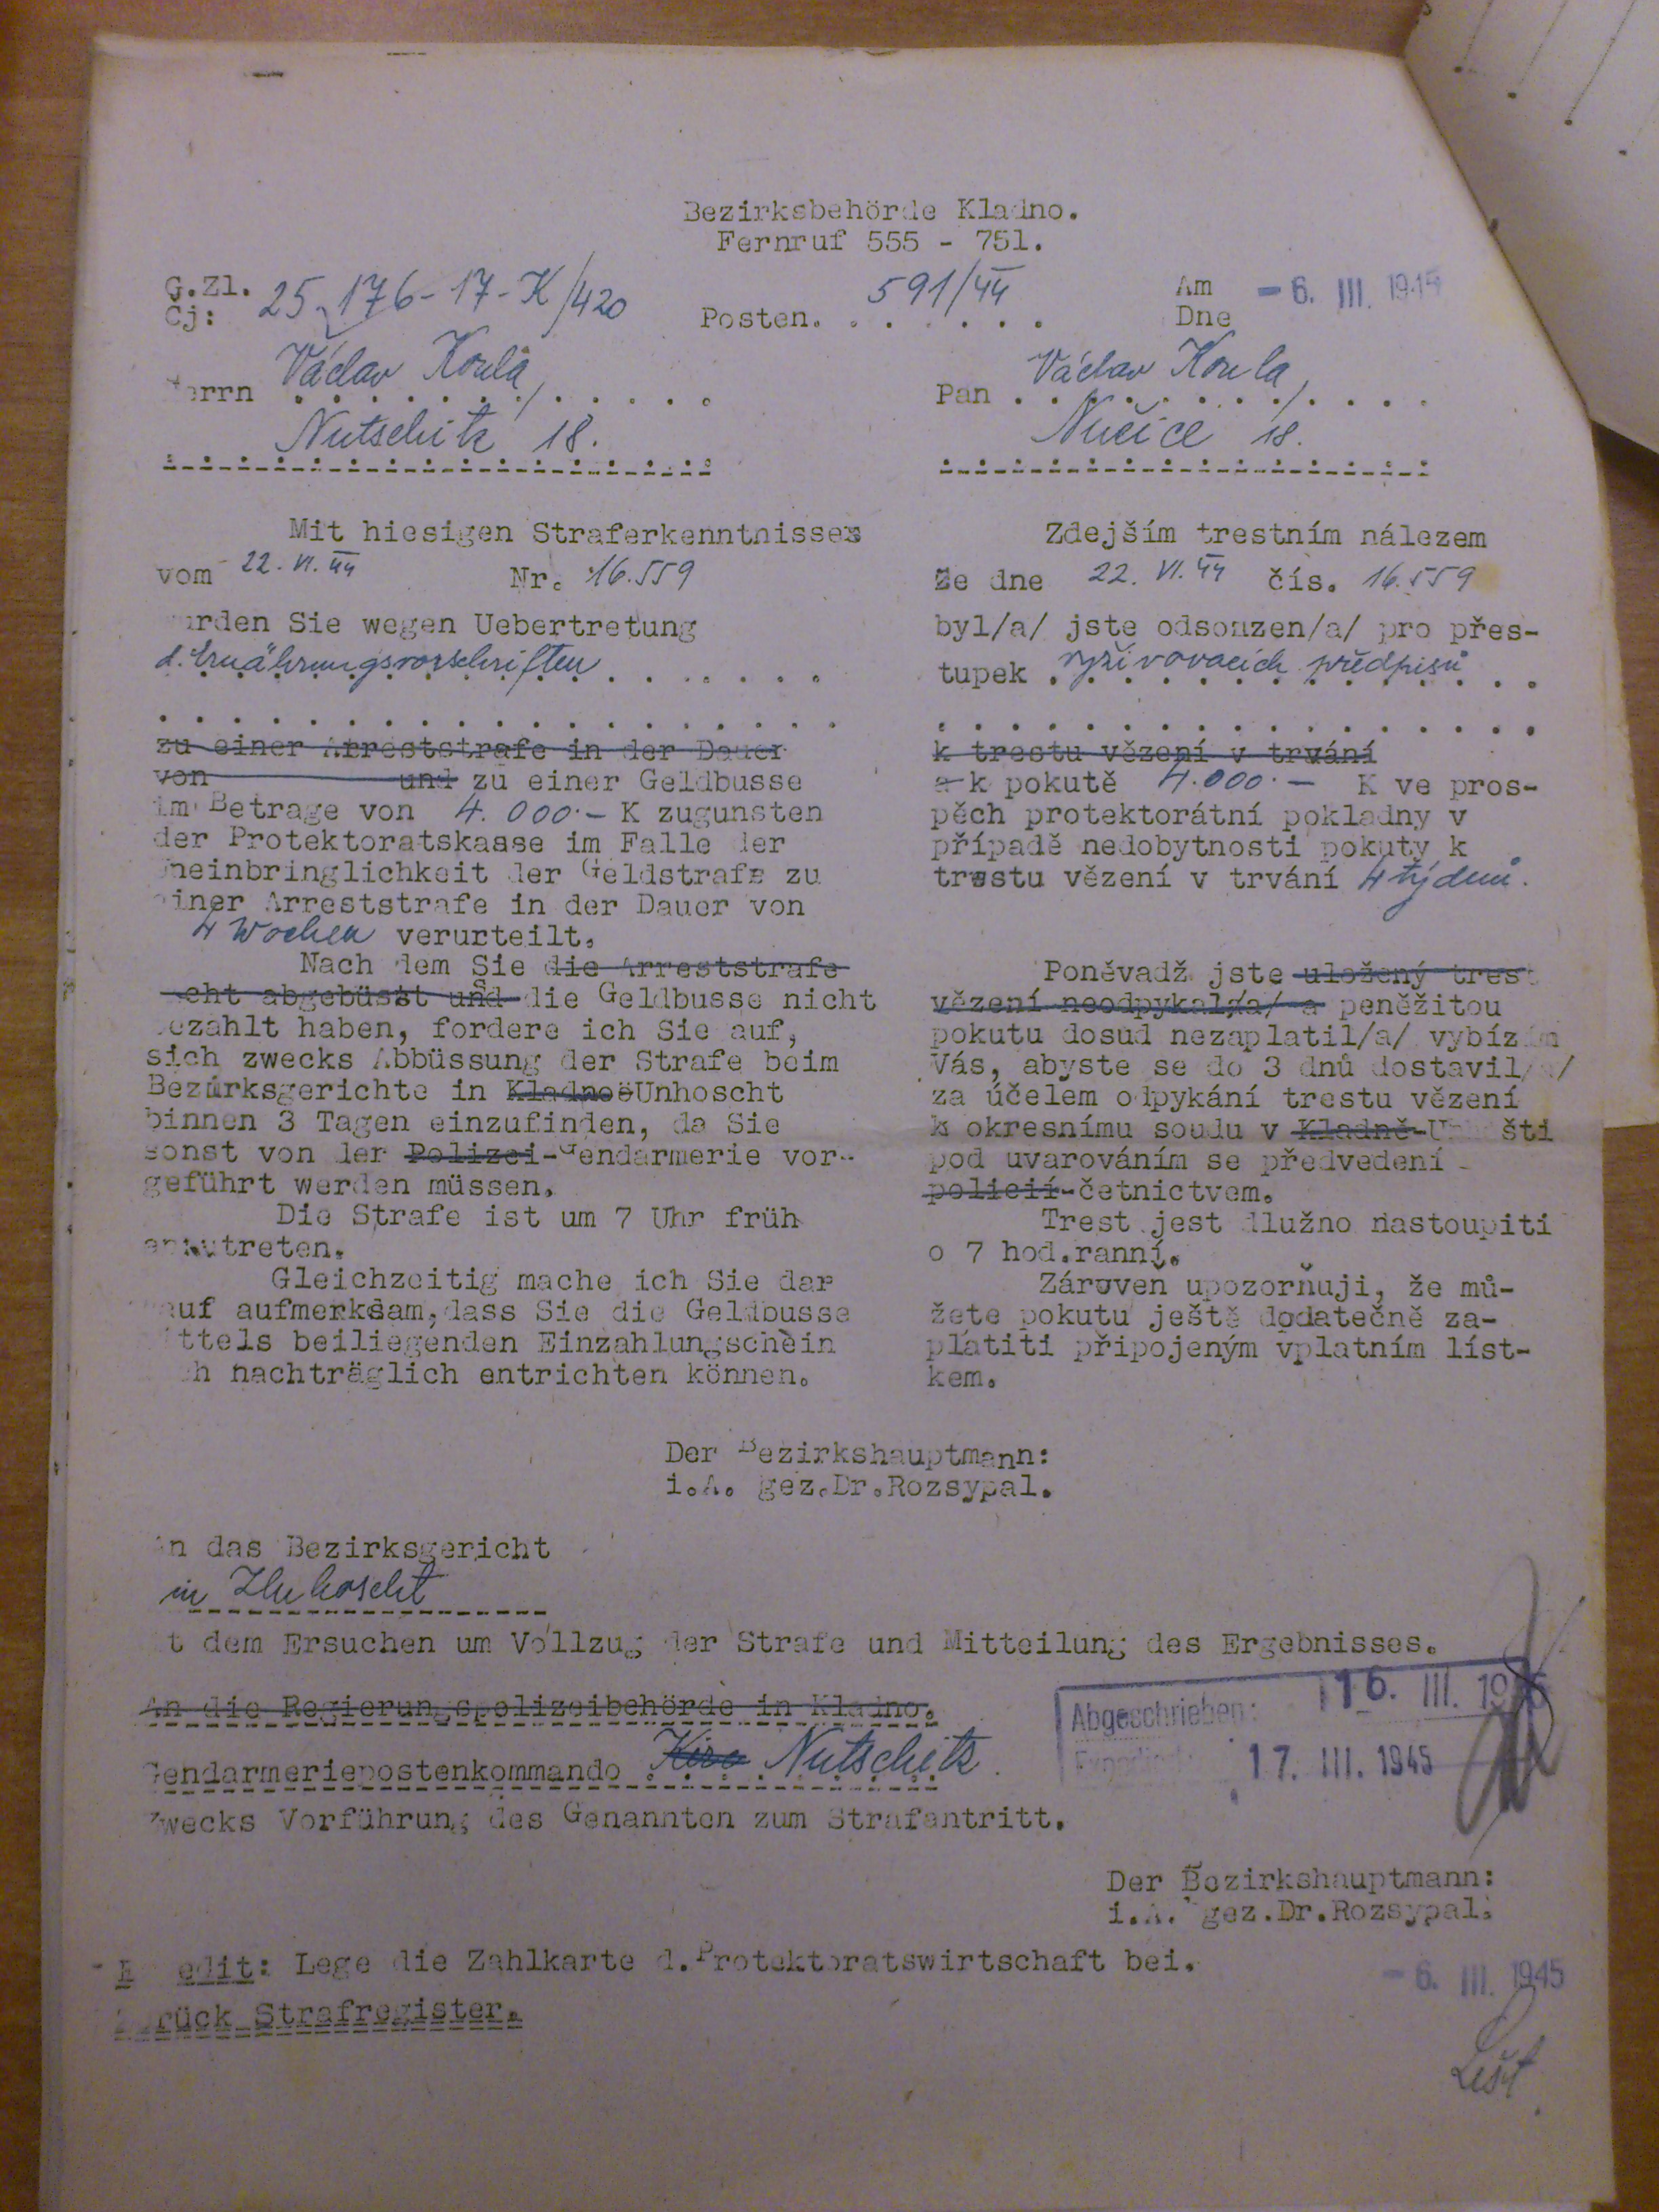 Bezirksbehörde Kladno.
Fernruf 555 - 751.
G.Zl. 25.176-17-K/420
Čj:
Posten. 591/44
Am - 6. III. 1945
Dne
Herrn Václav Koula,
Nutschitz 18.
Pan Václav Koula,
Nučice 18.
Mit hiesigen Straferkenntnisses
vom 22. VI. 44 Nr. 16.559
wurden Sie wegen Uebertretung
d. Ernährungsvorschriften
zu einer Arreststrafe in der Dauer
von und zu einer Geldbusse
im Betrage von 4.000.- K zugunsten
der Protektoratskasse im Falle der
Uneinbringlichkeit der Geldstrafe zu
einer Arreststrafe in der Dauer von
4 Wochen verurteilt.
Nach dem Sie die Arreststrafe
abgebüsst und die Geldbusse nicht
bezahlt haben, fordere ich Sie auf,
sich zwecks Abbüssung der Strafe beim
Bezirksgerichte in Kladno Unhoscht
binnen 3 Tagen einzufinden, da Sie
sonst von der Polizei-Gendarmerie vor-
geführt werden müssen.
Die Strafe ist um 7 Uhr früh
anzutreten.
Gleichzeitig mache ich Sie dar
auf aufmerksam, dass Sie die Geldbusse
mittels beiliegenden Einzahlungschein
nachträglich entrichten können.
Zdejším trestním nálezem
Ze dne 22. VI. 44 čís. 16.559
byl/a/ jste odsouzen/a/ pro přes-
tupek vyživovacích předpisů
k trestu vězení v trvání
a k pokutě 4.000.- K ve pros-
pěch protektorátní pokladny v
případě nedobytnosti pokuty k
trestu vězení v trvání 4 týdnů.
Poněvadž jste uložený trest
vězení neodpykal/a/ a peněžitou
pokutu dosud nezaplatil/a/ vybízím
Vás, abyste se do 3 dnů dostavil/a/
za účelem odpykání trestu vězení
k okresnímu soudu v Kladně-Unhošti
pod uvarováním se předvedení
policií-četnictvem.
Trest jest dlužno nastoupiti
o 7 hod.ranní.
Zároveň upozorňuji, že mů-
žete pokutu ještě dodatečně za-
platiti připojeným vplatním líst-
kem.
Der Bezirkshauptmann:
i.A. gez.Dr.Rozsypal.
An das Bezirksgericht
in Unhoscht
dem Ersuchen um Vollzug der Strafe und Mitteilung des Ergebnisses.
An die Regierungspolizeibehörde in Kladno.
Abgeschrieben: 16. III. 1945
17. III. 1945
Gendarmeriepostenkommando Nutschitz
Zwecks Vorführung des Genannten zum Strafantritt.
Der Bezirkshauptmann:
i.A. gez.Dr.Rozsypal.
Lege die Zahlkarte d.Protektoratswirtschaft bei.
- 6. III. 1945
Zurück Strafregister.